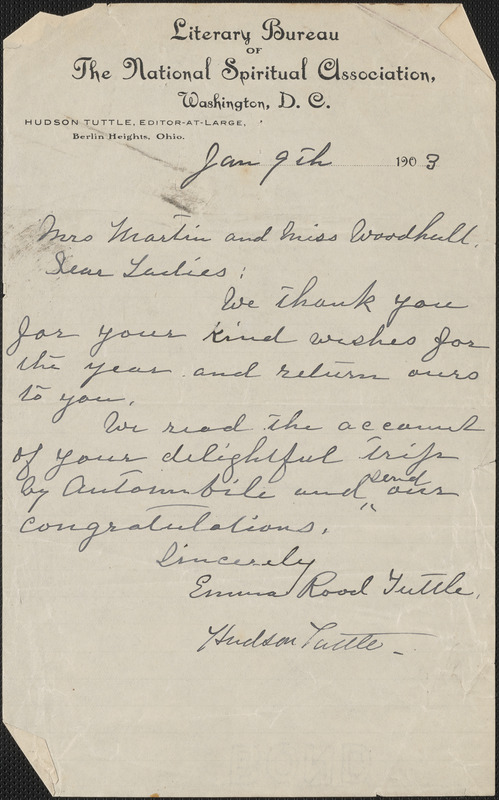 Literary Bureau
OF
The National Spiritual Association,
Washington, D. C.
HUDSON TUTTLE, EDITOR-AT-LARGE,
Berlin Heights, Ohio.
Jan 9th 1903
Mrs Martin and Miss Woodhull.
Dear Ladies;
We thank you
for your kind wishes for
the year and return ours
to you.
We read the account
of your delightful trip
by Automobile and send our
congratulations.
Sincerely
Emma Rood Tuttle.
Hudson Tuttle